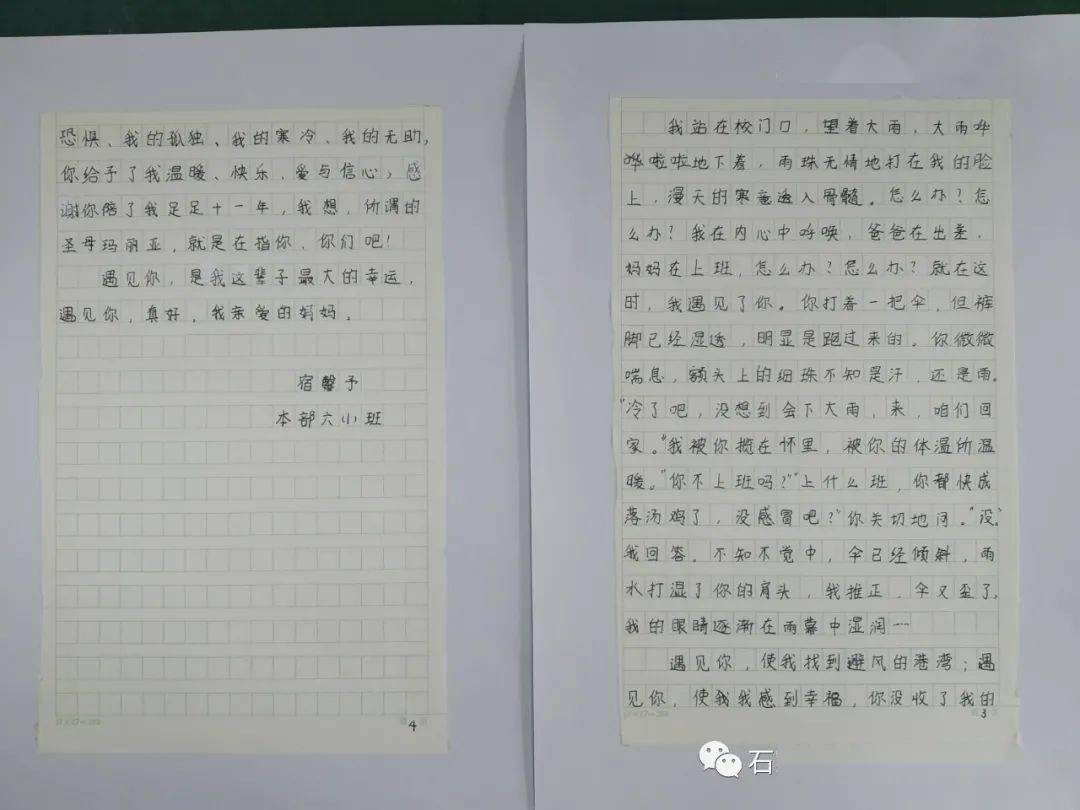 恐惧、我的孤独、我的寒冷、我的无助,
你给予了我温暖、快乐、爱与信心，感
谢你陪了我足足十一年，我想，所谓的
圣母玛丽亚，就是在指你，你们吧！
遇见你，是我这辈子最大的幸运，
遇见你，真好，我亲爱的妈妈。
宿馨予
本部六小班
4
我站在校门口，望着大雨，大雨哗
哗啦啦地下着，雨珠无情地打在我的脸
上，漫天的寒意透入骨髓。怎么办？怎
么办？我在内心中呼唤，爸爸在出差，
妈妈在上班，怎么办？怎么办？就在这
时，我遇见了你。你打着一把伞，但裤
脚已经湿透，明显是跑过来的。你微微
喘息，额头上的细珠不知是汗，还是雨。
“冷了吧，没想到会下大雨，来，咱们回
家。”我被你揽在怀里，被你的体温所温
暖。“你不上班吗？”“上什么班，你都快成
落汤鸡了，没感冒吧？”你关切地问。“没。”
我回答。不知不觉中，伞已经倾斜，雨
水打湿了你的肩头，我推正，伞又歪了。
我的眼睛逐渐在雨幕中湿润…
遇见你，使我找到避风的港湾；遇
见你，使我我感到幸福，你没收了我的
17×17=289
3
石